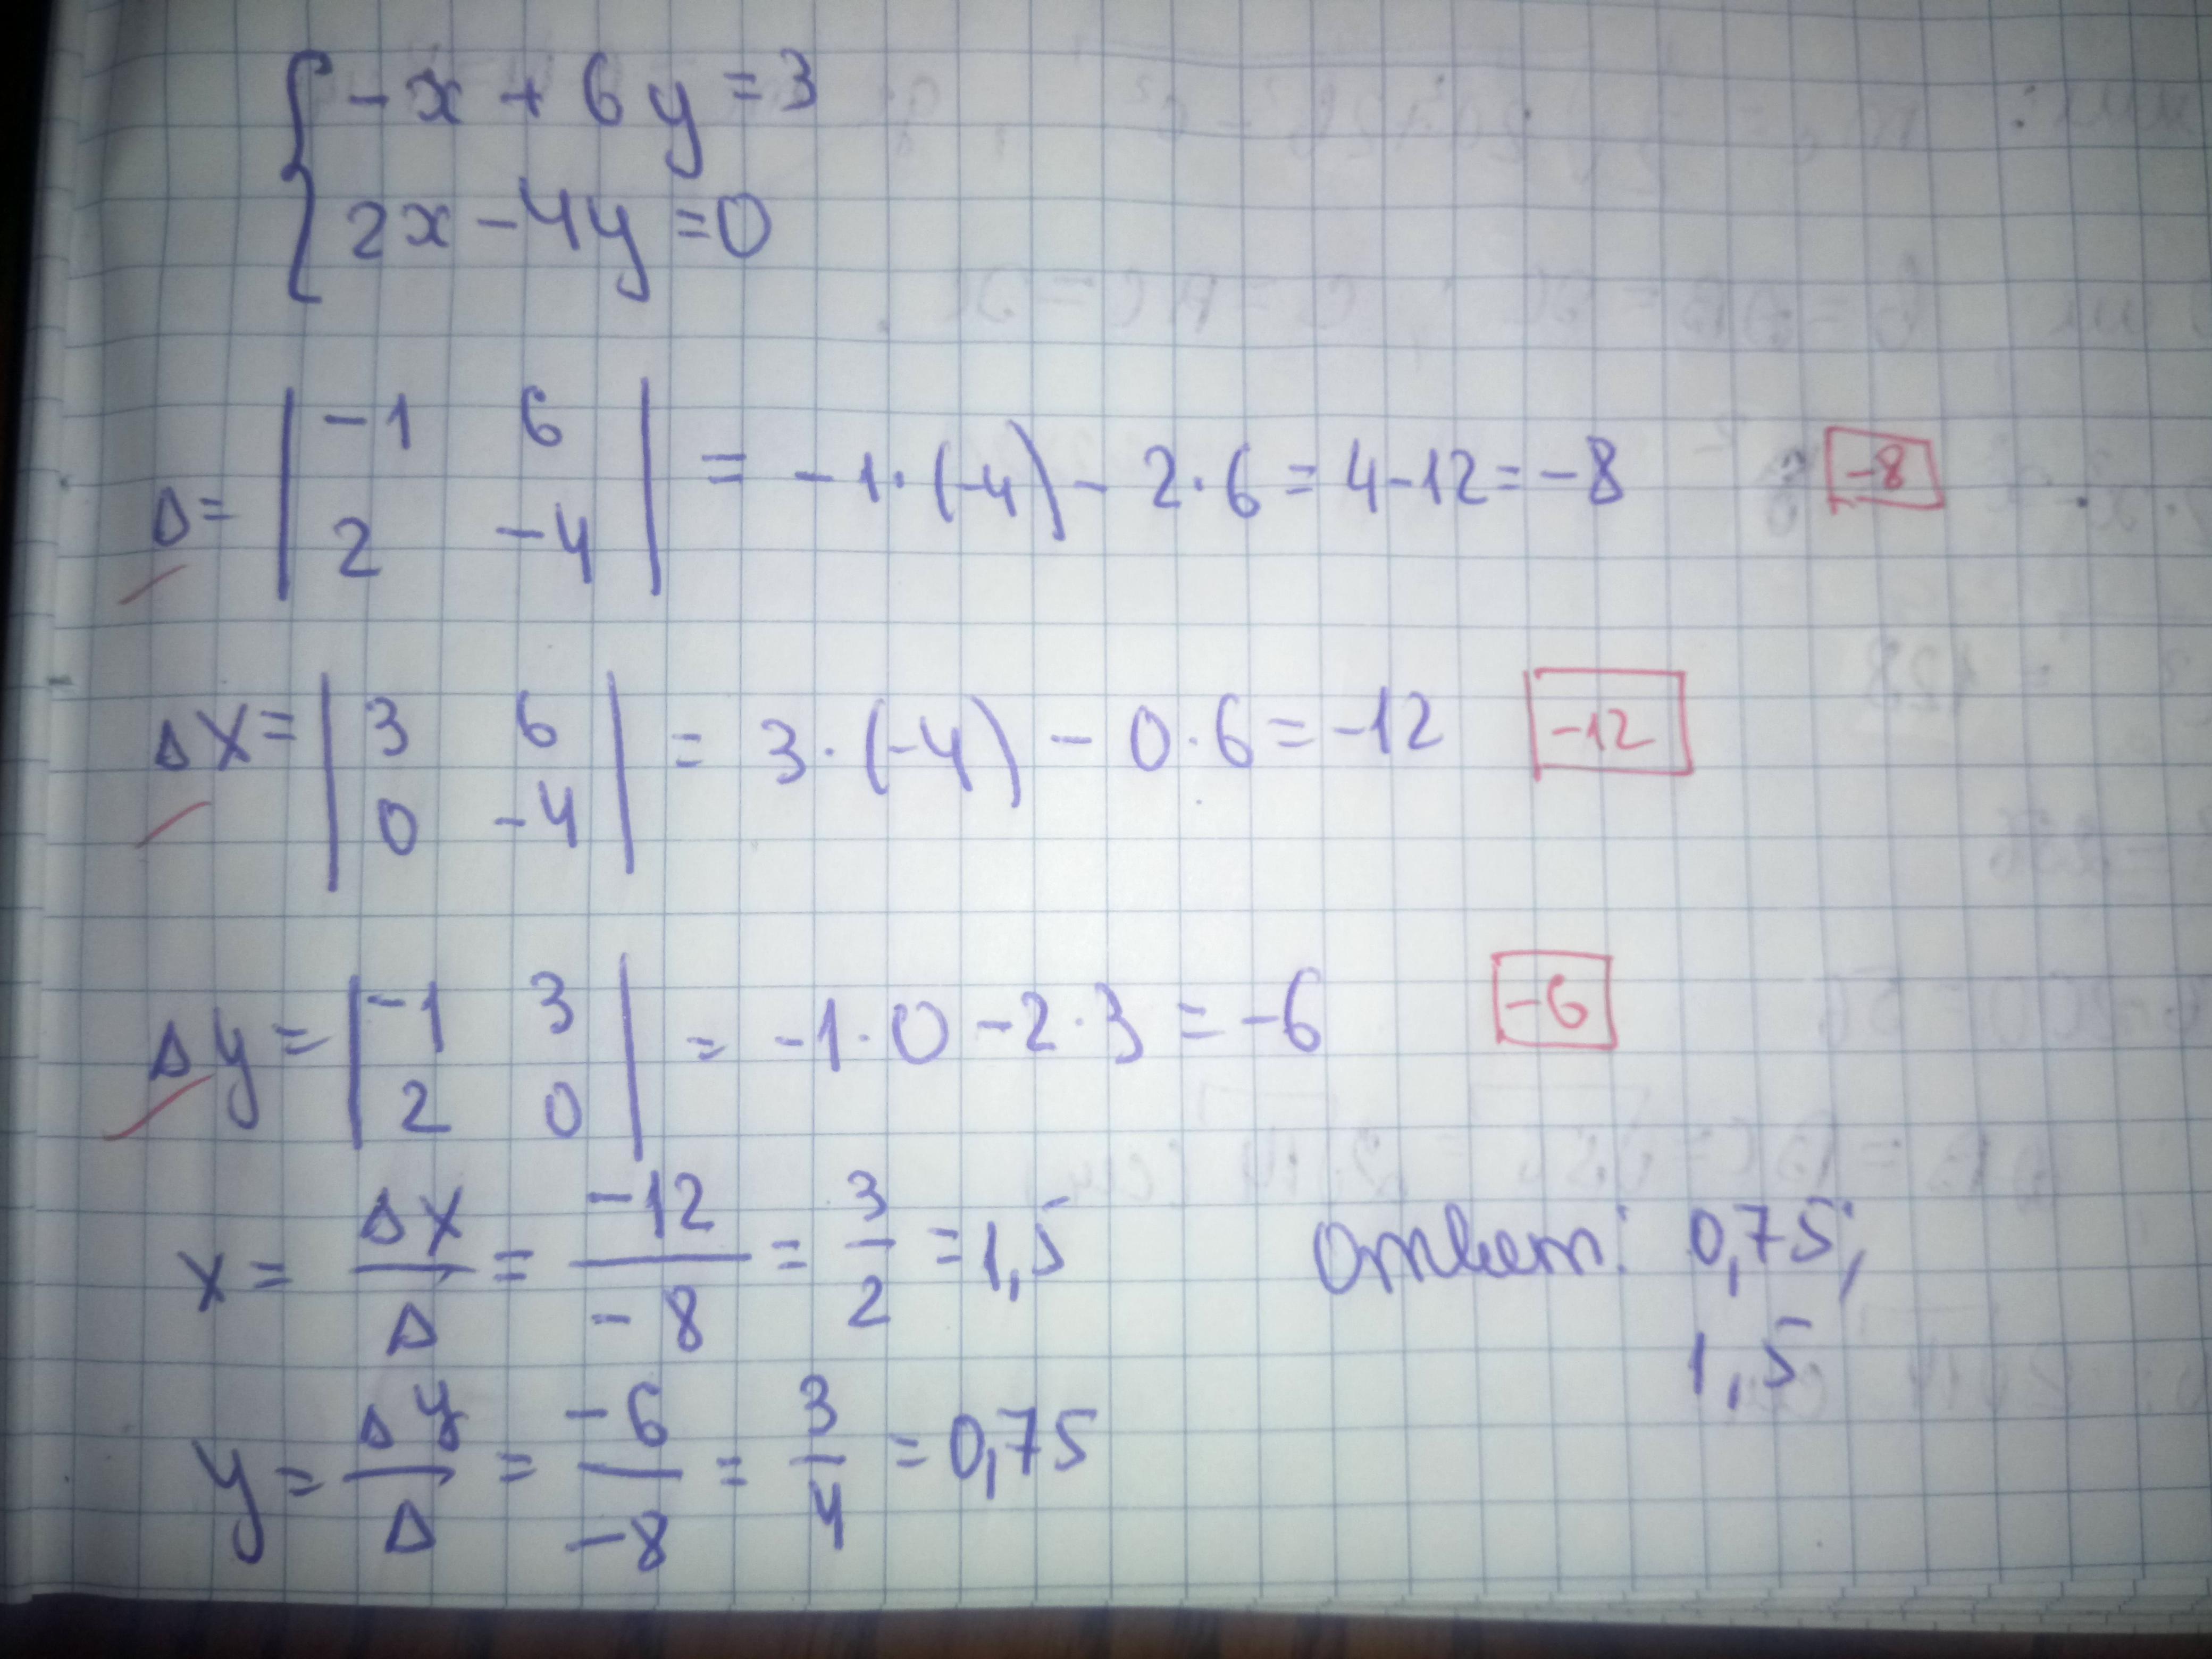 { -x + 6y = 3
2x - 4y = 0
Δ = | -1 6 | = -1·(-4) - 2·6 = 4-12 = -8 -8
| 2 -4 |
Δx = | 3 6 | = 3·(-4) - 0·6 = -12 -12
| 0 -4 |
Δy = | -1 3 | = -1·0 - 2·3 = -6 -6
| 2 0 |
x = Δx/Δ = -12/-8 = 3/2 = 1,5
Ответ: 0,75;
1,5
y = Δy/Δ = -6/-8 = 3/4 = 0,75